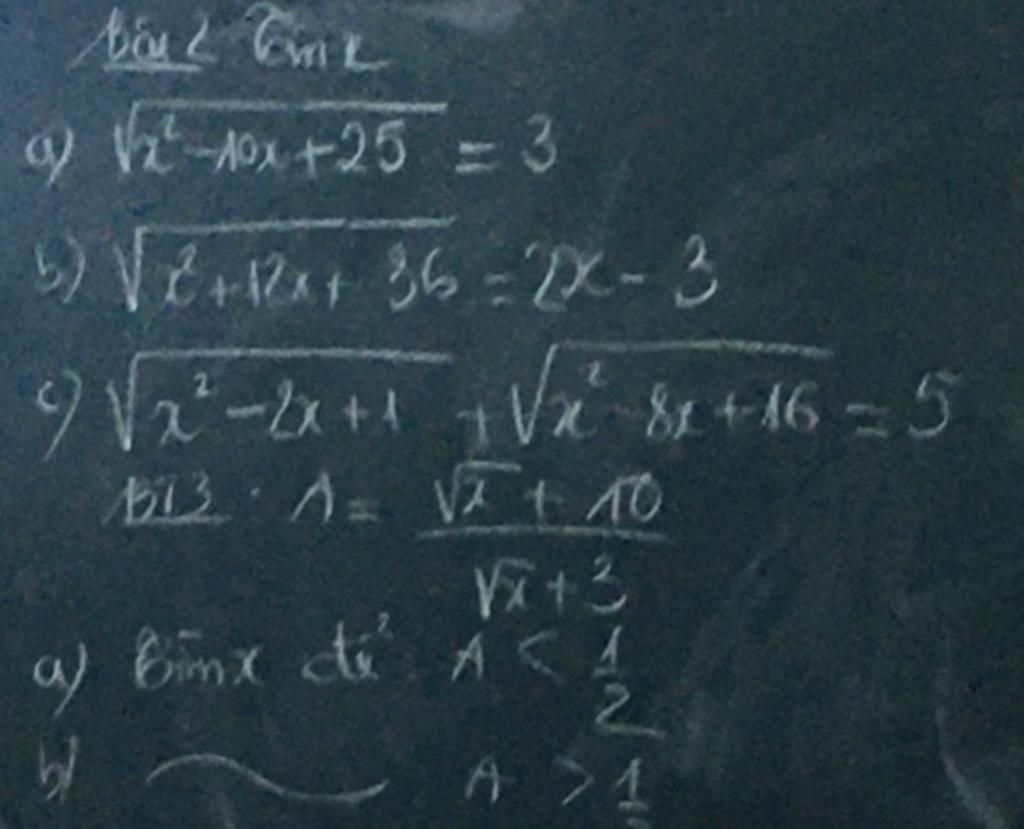 Bài 2 Tìm x
a) √(x² - 10x + 25) = 3
b) √(x² + 12x + 36) = 2x - 3
c) √(x² - 2x + 1) + √(x² - 8x + 16) = 5
BT3 . A = (√x + 10)/(√x + 3)
a) Tìm x để A < 1/2
b) ~ A > 1/